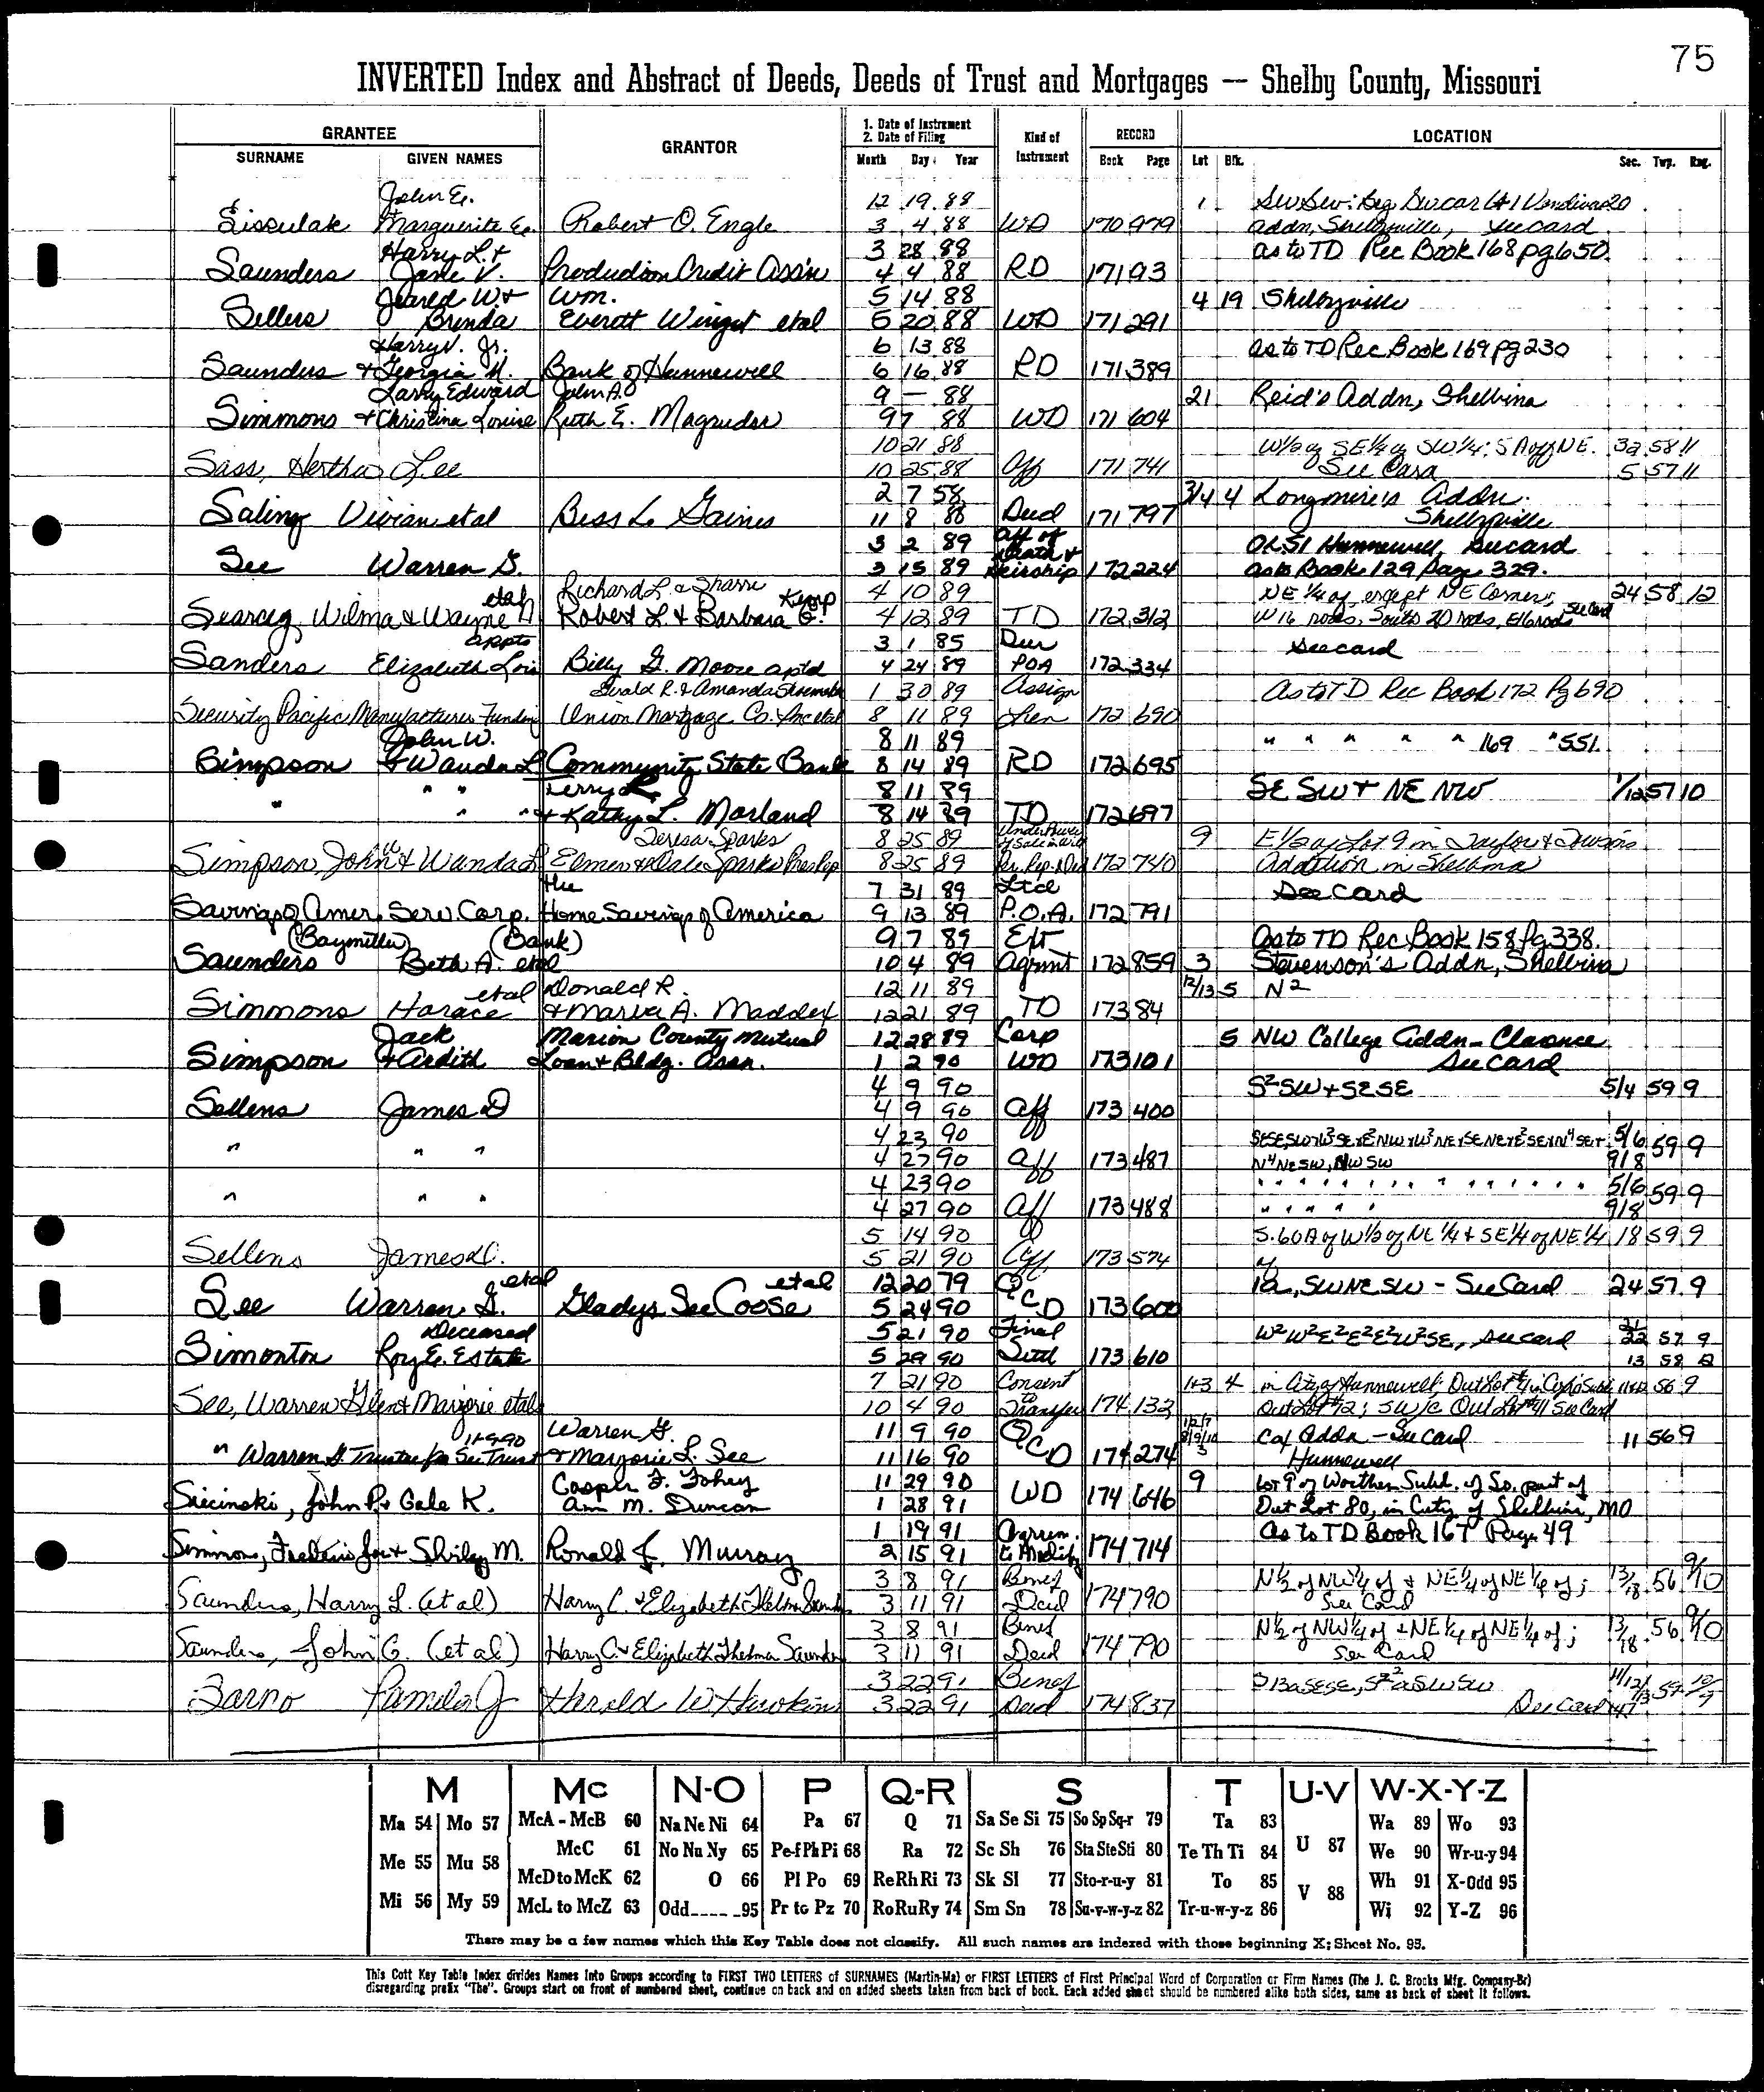 75
INVERTED Index and Abstract of Deeds, Deeds of Trust and Mortgages — Shelby County, Missouri
GRANTEE GRANTOR 1. Date of Instrument 2. Date of Filing Kind of Instrument RECORD LOCATION
SURNAME GIVEN NAMES Month Day Year Book Page Lot Blk. Sec. Twp. Rng.
John E. 12 19 88 1
Marguerite Robert O. Engle 3 4 88 WD 170 979 addn, Shelbyville, See card
Harry L. + 3 28 88 as to TD Rec Book 168 pg 650
Saunders Jane V. Production Credit Ass'n 4 4 88 RD 171 93
Jeared W + Wm. 5 14 88 4 19 Shelbyville
Sellers Brenda Everett Winget etal 5 20 88 WD 171 291
Harry V. Jr. 6 13 88 as to TD Rec Book 169 pg 230
Saunders + Georgia M. Bank of Hunnewell 6 16 88 RD 171 389
Larry Edward John A. 9 — 88 21 Reid's Addn, Shelbina
Simmons + Christina Louise Ruth E. Magruder 9 7 88 WD 171 604
10 21 88 W½ of SE¼ of SW¼; 5 A off NE. 32 58 11
Sass, Hertha Lee 10 25 88 Aff 171 741 See Card 5 57 11
2 7 58 3/4 4 Longmire's Addn.
Saling Vivian etal Bess L. Gaines 11 8 88 Deed 171 797 Shelbyville
3 2 89 Aff of Death + OL 51 Hunnewell, See card
See Warren G. 3 15 89 Heirship 172 224 as to Book 129 page 329.
Richard L. & Sharri Kemp 4 10 89 NE ¼ of, except NE Corner, 24 58 12
Searcy, Wilma & Wayne etal Robert L. + Barbara G. 4 12 89 TD 172 312 W 16 rods, South 20 rods, E 16 rods See Card
appts 3 1 85 Dur See card
Sanders Elizabeth Lois Billy G. Moore aptd 4 24 89 POA 172 334
Gerald R. & Amanda Shoemaker 1 30 89 Assign As to TD Rec Book 172 Pg 690
Security Pacific Manufactures Funding Union Mortgage Co. Inc etal 8 11 89 Lien 172 690
John W. 8 11 89 " " " " " 169 " 551.
Simpson + Wanda L Community State Bank 8 14 89 RD 172 695
" " " Terry L. 8 11 89 SE SW + NE NW 1/12 57 10
" " + Kathy L. Morland 8 14 89 TD 172 697
Teresa Sparks 8 25 89 Under Power of Sale in Will 9 E½ of Lot 9 in Taylor &
Simpson, John W & Wanda L Elmer & Dale Sparks Pers Rep 8 25 89 Per. Rep. Deed 172 740 Addition in Shelbina
the 7 31 89 Ltd See Card
Savings of Amer. Serv. Corp. Home Savings of America 9 13 89 P.O.A. 172 791
(Baymiller) (Bank) 9 7 89 Ext As to TD Rec Book 158 Pg 338.
Saunders Beth A. etal 10 4 89 Agrmt 172 859 3 Stevenson's Addn, Shelbina
etal Donald R. 12 11 89 12/13 5 N²
Simmons Horace + Maria A. Maddex 12 21 89 TD 173 84
Jack Marion County Mutual 12 28 89 Corp 5 NW College Addn - Clarence
Simpson + Ardith Loan + Bldg. Assn. 1 2 90 WD 173 101 See Card
4 9 90 S²SW + SE SE 5/4 59 9
Sellens James D 4 9 90 Aff 173 400
4 23 90 5/6 59 9
" " " 4 27 90 Aff 173 487 N⁴ NE SW, NW SW 9/8
4 23 90 " " " " 5/6 59 9
" " " 4 27 90 Aff 173 488 " " " " 9/8
5 14 90 S. 60 A of W½ of NE ¼ + SE¼ of NE ¼ 18 59 9
Sellens James D. 5 21 90 Aff 173 574 of
etal etal 12 20 79 1a, SW NE SW - See Card 24 57 9
See Warren G. Gladys See Coose 5 24 90 QCD 173 600
Deceased 5 21 90 Final W²W²E²E²E²W²SE, See card 21/22 57 9
Simonton Roy E. Estate 5 29 90 Settl 173 610 13 58
7 21 90 Consent 1+3 4 in City of Hunnewell; Out Lot #4 in 56 9
See, Warren Glen & Marjorie etal 10 4 90 to Transfer 174 132 Out Lot #12; SW/c Out Lot #41 See Card
11-9-90 Warren G. 11 9 90 1/2/7 8/9/10 3 Cox Addn - See Card 11 56 9
" Warren G. Trustee for See Trust + Marjorie L. See 11 16 90 QCD 174 274 Hunnewell
Casper F. Fohey 11 29 90 9 Lot 9 of Worthen Subd. of So. part of
Siecinski, John P + Gale K. Ann M. Duncan 1 28 91 WD 174 646 Out Lot 80, in City of Shelbina, MO
1 19 91 Agreem. As to TD Book 167 Page 49
Simmons, Frederic Joe + Shirley M. Ronald J. Murray 2 15 91 to Modify 174 714
3 8 91 Benef N½ of NW¼ of + NE¼ of NE¼ of; 13/18 56 9/10
Saunders, Harry L. (et al) Harry C. & Elizabeth Thelma Saunders 3 11 91 Deed 174 790 See Card
3 8 91 Benef N½ of NW¼ of + NE¼ of NE¼ of; 13/18 56 9/10
Saunders, John G. (et al) Harry C. & Elizabeth Thelma Saunders 3 11 91 Deed 174 790 See Card
3 22 91 Benef 59
Pamela J Harold W Hawkins 3 22 91 Deed 174 837 See Card
M Mc N-O P Q-R S T U-V W-X-Y-Z
Ma 54 Mo 57 McA - McB 60 Na Ne Ni 64 Pa 67 Q 71 Sa Se Si 75 So Sp Sq-r 79 Ta 83 U 87 Wa 89 Wo 93
Me 55 Mu 58 McC 61 No Nu Ny 65 Pe-f Ph Pi 68 Ra 72 Sc Sh 76 Sta Ste Sti 80 Te Th Ti 84 V 88 We 90 Wr-u-y 94
McD to McK 62 O 66 Pl Po 69 Re Rh Ri 73 Sk Sl 77 Sto-r-u-y 81 To 85 Wh 91 X-Odd 95
Mi 56 My 59 McL to McZ 63 Odd 95 Pr to Pz 70 Ro Ru Ry 74 Sm Sn 78 Su-v-w-y-z 82 Tr-u-w-y-z 86 Wi 92 Y-Z 96
There may be a few names which this Key Table does not classify. All such names are indexed with those beginning X; Sheet No. 95.
This Cott Key Table Index divides Names Into Groups according to FIRST TWO LETTERS of SURNAMES (Martin-Ma) or FIRST LETTERS of First Principal Word of Corporation or Firm Names (The J. C. Brooks Mfg. Company-Br)
disregarding prefix "The". Groups start on front of numbered sheet, continue on back and on added sheets taken from back of book. Each added sheet should be numbered alike both sides, same as back of sheet it follows.